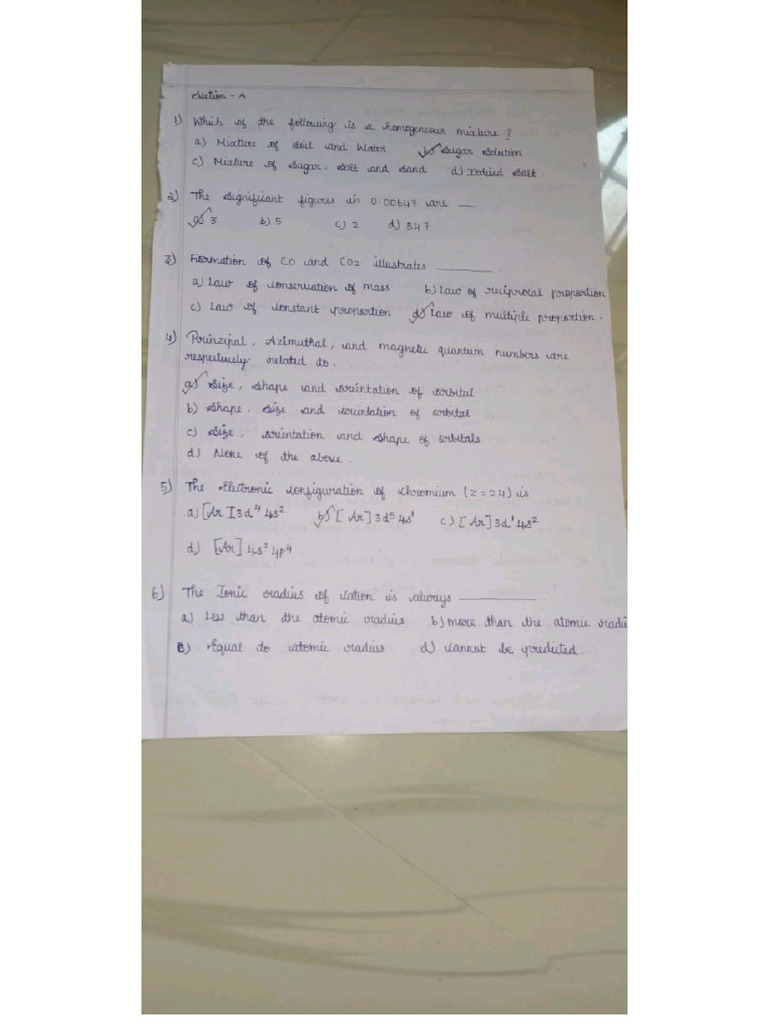 Section - A
1) Which of the following is a homogeneous mixture ?
a) Mixture of Soil and Water b) Sugar Solution
c) Mixture of Sugar, Salt and Sand d) Iodized Salt.
2) The Significant figures in 0.00647 are —
a) 3 b) 5 c) 2 d) 847
3) Formation of CO and CO2 illustrates ______.
a) Law of conservation of mass b) Law of reciprocal proportion
c) Law of constant proportion d) Law of multiple proportion.
4) Prinzipal, Azimuthal, and magnetic quantum numbers are
respectively related to.
a) Size, shape and orientation of orbital
b) Shape, Size and orientation of orbital
c) Size, orientation and shape of orbitals
d) None of the above.
5) The Electronic configuration of chromium (z=24) is
a) [Ar I 3d⁴ 4s² b) [Ar] 3d⁵ 4s¹ c) [Ar] 3d¹ 4s²
d) [Ar] 4s² 4p⁴
6) The Ionic radius of cation is always ______.
a) Less than the atomic radius b) more than the atomic radiu
c) Equal to atomic radius d) cannot be predicted.